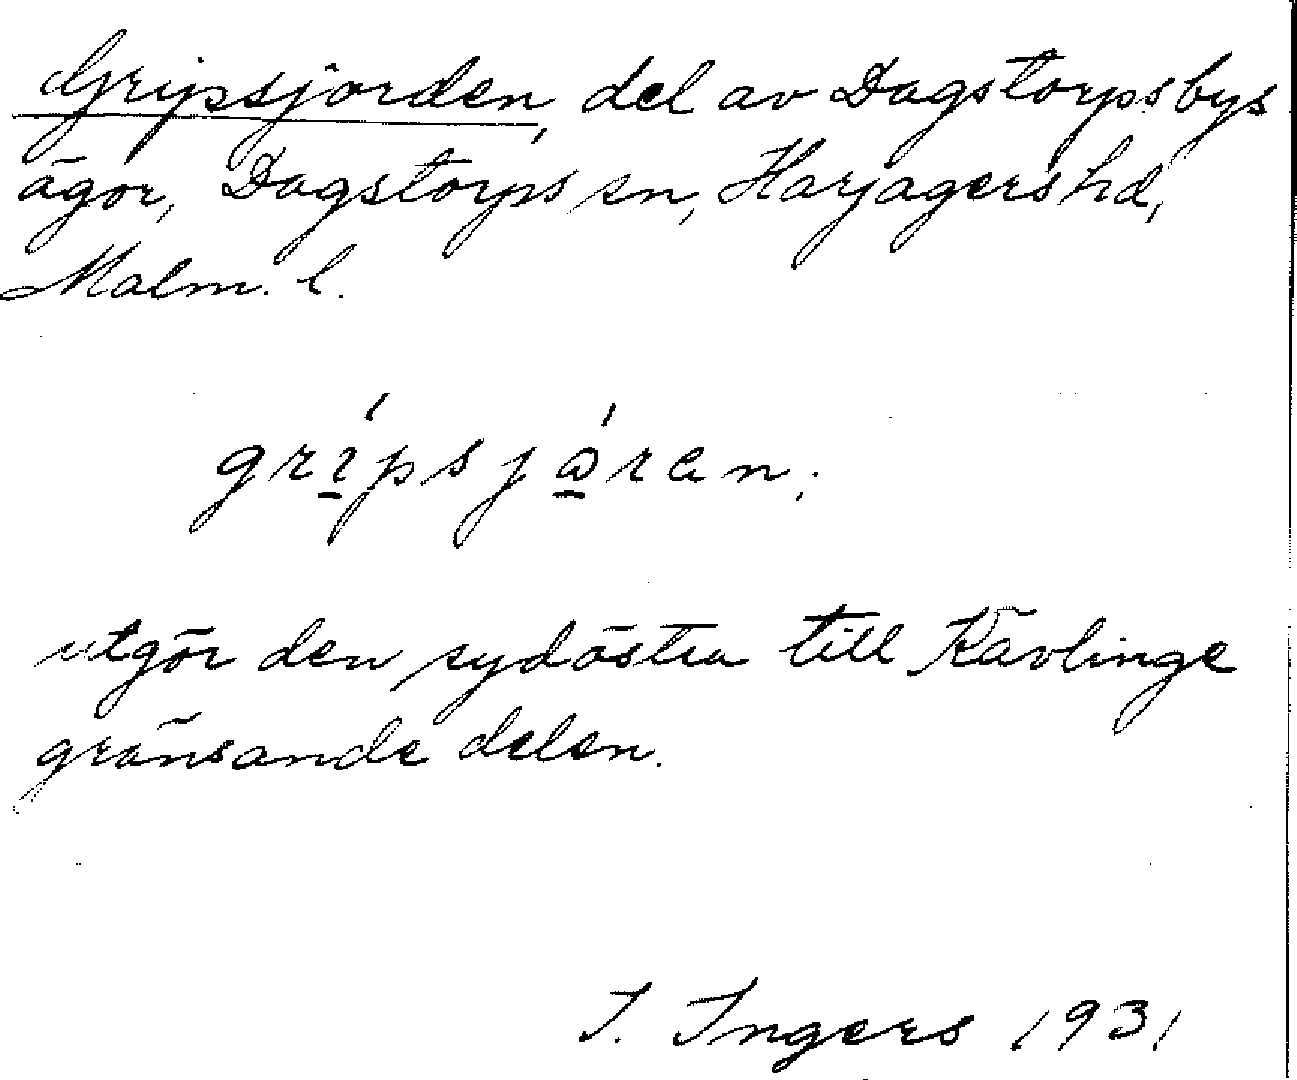 Gripsjorden, del av Dagstorps bys
ägor, Dagstorps sn, Harjagers hd,
Malm. l.
grípsjåran;
utgör den sydöstra till Kävlinge
gränsande delen.
I. Ingers 1931